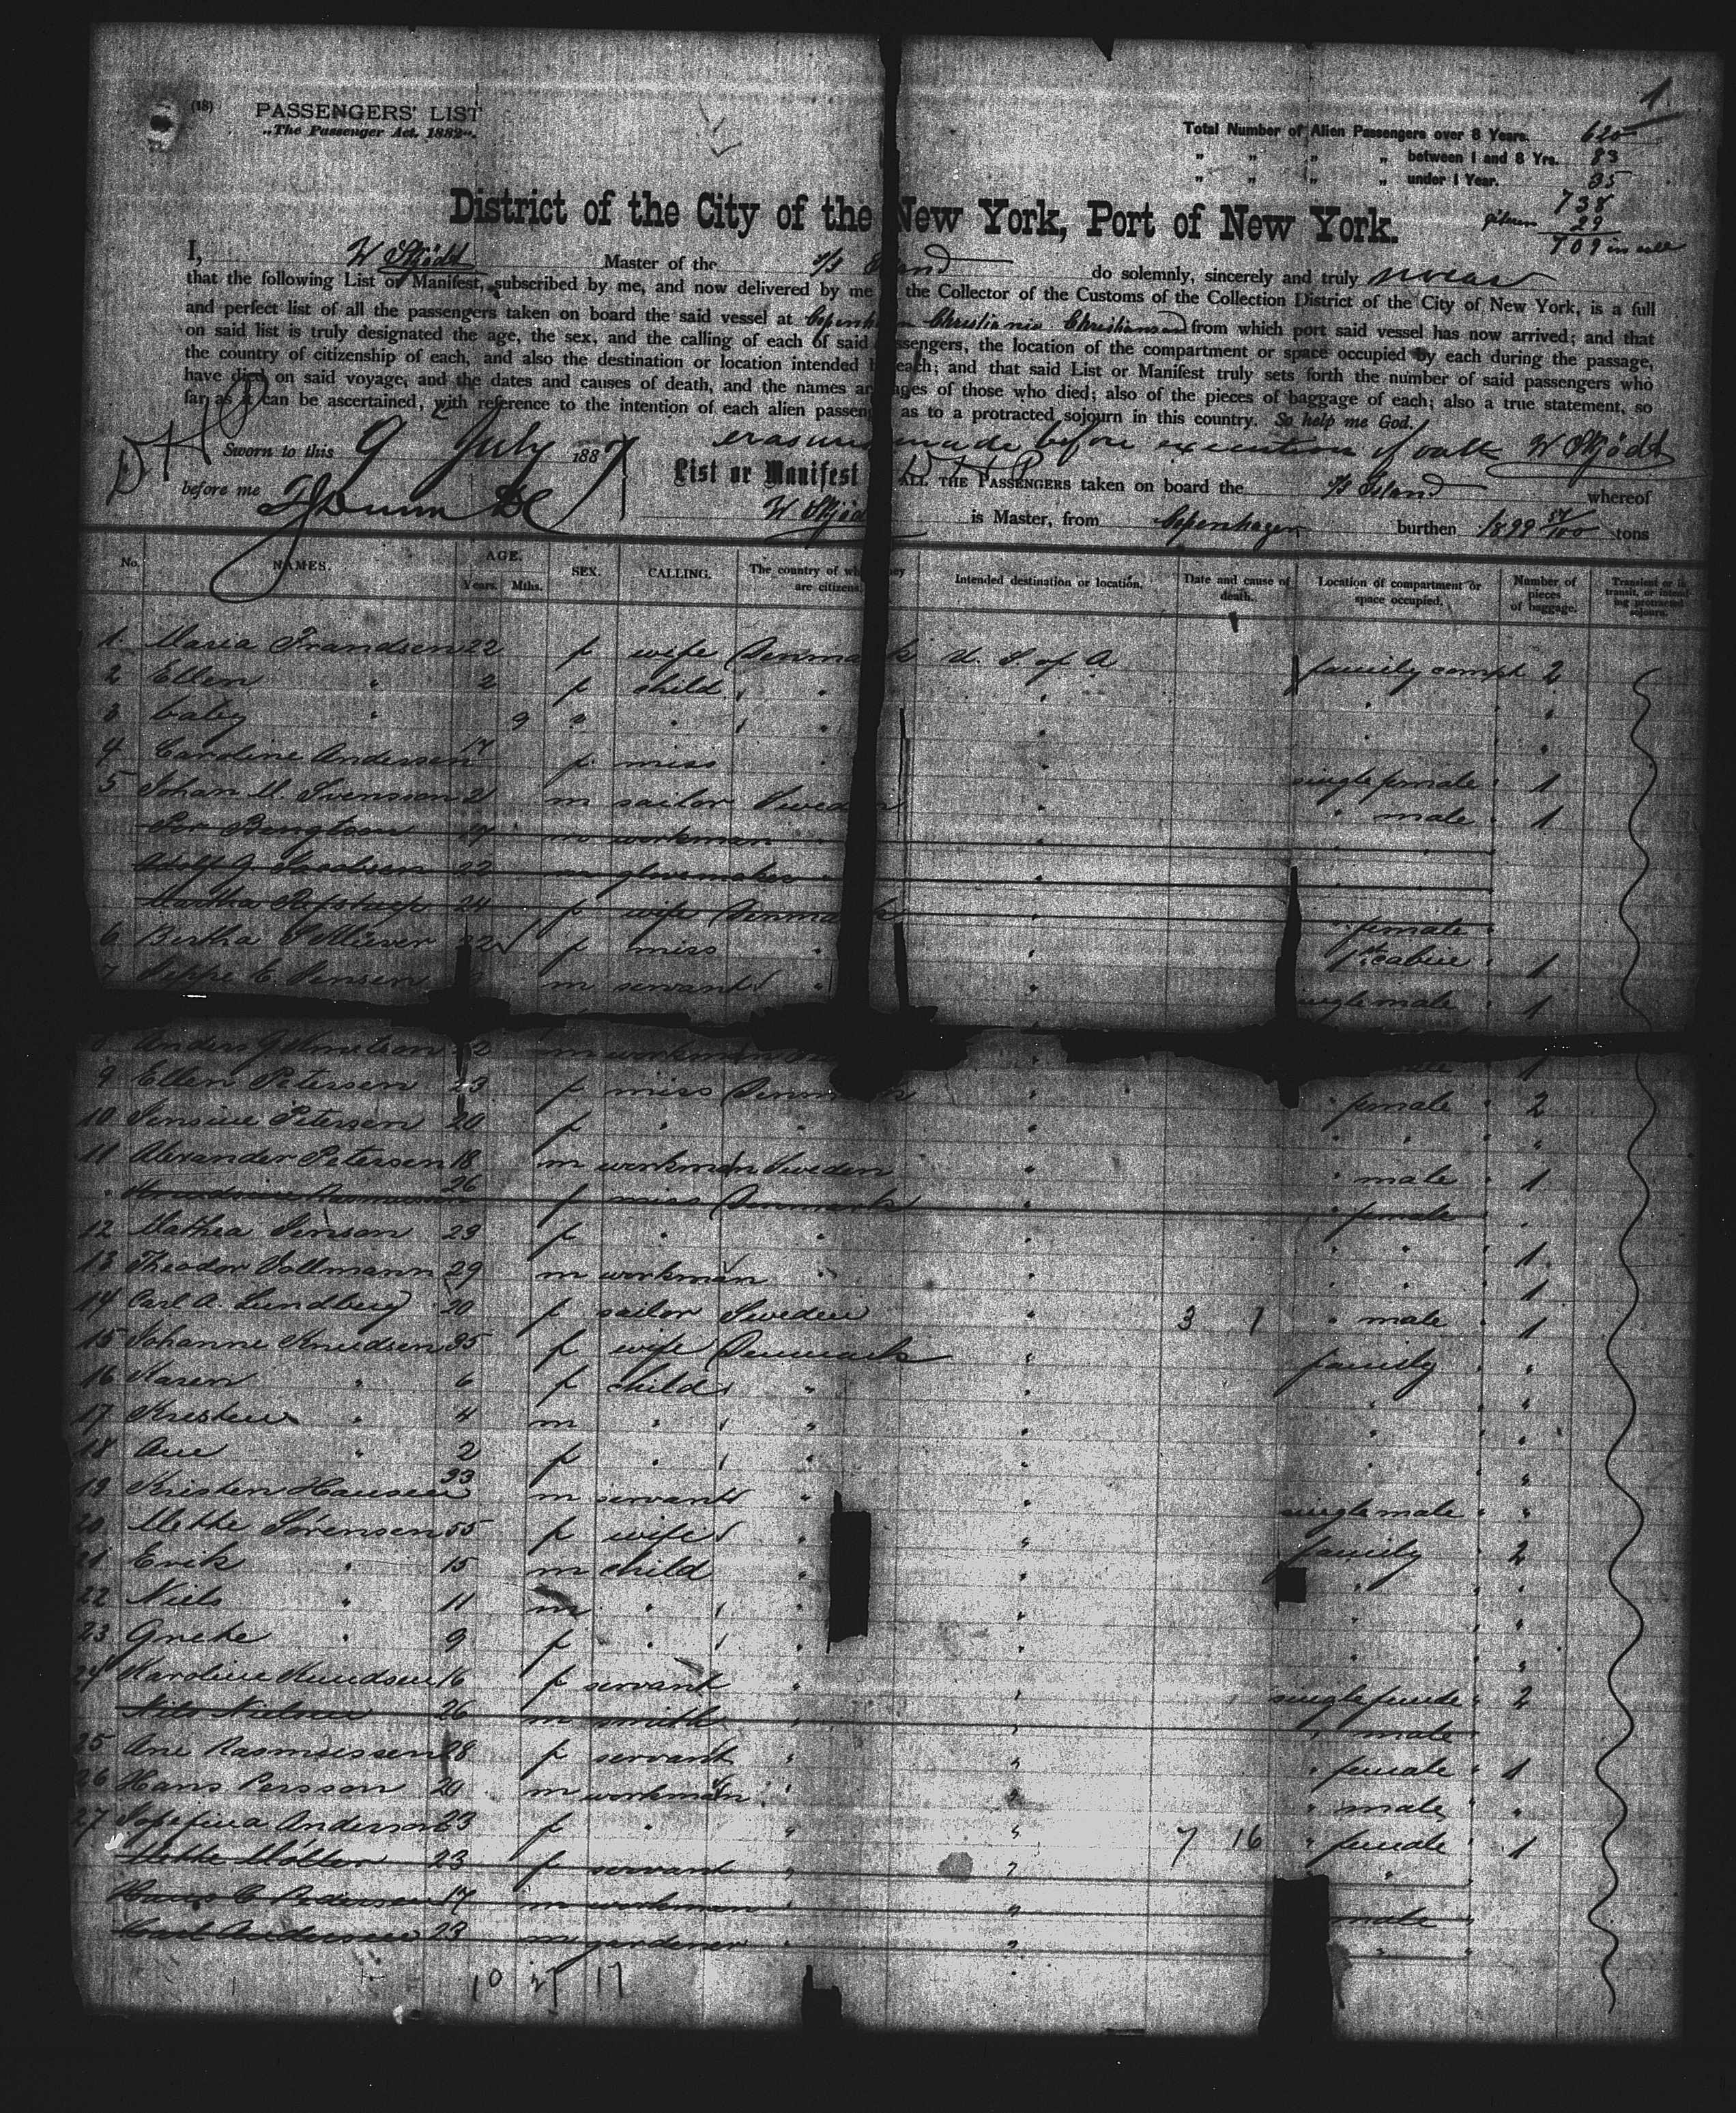 1
(18) PASSENGERS' LIST
„The Passenger Act. 1882".
Total Number of Alien Passengers over 8 Years. 620
„ „ „ „ between 1 and 8 Yrs. 83
„ „ „ „ under 1 Year. 35
738
29
709 in all
District of the City of the New York, Port of New York.
I, W Skjödt Master of the S/S Island do solemnly, sincerely and truly swear
that the following List or Manifest, subscribed by me, and now delivered by me the Collector of the Customs of the Collection District of the City of New York, is a full
and perfect list of all the passengers taken on board the said vessel at Copenhagen Christiania Christiansand from which port said vessel has now arrived; and that
on said list is truly designated the age, the sex, and the calling of each of said passengers, the location of the compartment or space occupied by each during the passage,
the country of citizenship of each, and also the destination or location intended each; and that said List or Manifest truly sets forth the number of said passengers who
have died on said voyage, and the dates and causes of death, and the names ages of those who died; also of the pieces of baggage of each; also a true statement, so
far as it can be ascertained, with reference to the intention of each alien passenger as to a protracted sojourn in this country. So help me God.
erasures made before execution of oath W Skjödt
Sworn to this 9 July 1887
List or Manifest ALL THE PASSENGERS taken on board the S/S Island whereof
before me
W Skjödt is Master, from Copenhagen burthen 1899 57/100 tons
No. NAMES. AGE. Years. Mths. SEX. CALLING. The country of which they are citizens. Intended destination or location. Date and cause of death. Location of compartment or space occupied. Number of pieces of baggage. Transient or in transit, or intending protracted sojourn.
1 Maria Frandsen 22 f wife Denmark U. S. of A family compt 2
2 Ellen " 2 f child " " " "
3 baby " 9 " " " " " "
4 Caroline Andersen 17 f miss " " single female " 1
5 Johan M. Svensson 21 m sailor Sweden " " male " 1
Per Bengtson 27 m workman " "
Adolf J. Jacobsen 22 m glovemaker " "
Martha 24 f wife Denmark " " female "
6 Bertha 22 f miss " " 1st cabin " 1
7 Jeppe C. Jensen m servant " " single male " 1
8 Anders 22 m workman 1
9 Ellen Petersen 23 f miss Denmark " " female " 2
10 Jensine Petersen 20 f " " " " " " "
11 Alexander Petersen 18 m workman Sweden " " male " 1
26 f miss Denmark " " female "
12 Mathea Jenson 23 f " " " " " 1
13 Theodor Vollmann 29 m workman " " " " 1
14 Carl A. Lundberg 20 f sailor Sweden " 3 1 " male " 1
15 Johanne Knudsen 35 f wife Denmark " family " "
16 Karen " 6 f child " " " "
17 Kresten " 4 m " " " " "
18 Ane " 2 f " " " " "
19 Kristen Hansen 33 m servant " " single male " "
20 Mette Sörensen 55 f wife " " family " 2
21 Erik " 15 m child " " " " "
22 Niels " 11 m " " " " "
23 Grete " 9 f " " " " "
24 Karoline Knudsen 16 f servant " " single female " 2
Nils Nielsen 26 m smith " " " male "
25 Ane Rasmussen 28 f servant " " " female " 1
26 Hans Persson 20 m workman " " " male " "
27 Josefina Anderson 23 f " " " 7 16 " female " 1
Mette Möller 23 f servant " " " "
Hans C. Pedersen 17 m workman " " male "
Carl Andersen 23 m gardener " " " "
10 27 17